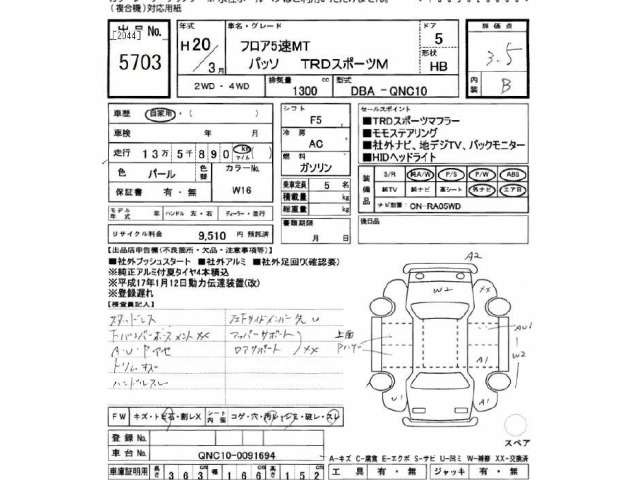 (複合機)対応用紙
出品No.
[2044]
5703
年式
H20/3月
車名・グレード
フロア5速MT
パッソ TRDスポーツM
ドア
5
形状
HB
評価点
3.5
内装
B
2WD・4WD
排気量
1300 cc
型式
DBA-QNC10
車歴
自家用・( )
車検 年 月
走行 13万5千890 km マイル
色 パール
色替
カラーNo.
W16
保証書 有・無
モデル年式 年 ハンドル 左・右 ディーラー・並行
リサイクル料金 9,510円 預託済
シフト
F5
冷房
AC
燃料
ガソリン
乗車定員 5 名
積載量 kg
総重量 kg
書類期限
月 日
セールスポイント
■TRDスポーツマフラー
■モモステアリング
■社外ナビ、地デジTV、バックモニター
■HIDヘッドライト
装備品
S/R 純A/W P/S P/W ABS
純TV 純ナビ 革シート 外ナビ エアB
ナビ型番 ON-RA05WD
後日品
【出品店申告欄(不良箇所・欠品・注意事項等)】
■社外プッシュスタート ■社外アルミ ■社外足回り(確認要)
※純正アルミ付夏タイヤ4本積込
※平成17年1月12日動力伝達装置(改)
※登録遅れ
【検査員記入】
スタッドレス
アッパーサポート
ロアサポート
XX
A・U・P アセ
トリムキズ
ハンドルスレ
上面
A2
W2
XX
AU1
W2
A1
A1
U1
FW キズ・トビ石・割レX シート内張 コゲ・穴・汚レ・シミ・破レ・スレ
スペア
登録No.
車台No. QNC10-0091694
A-キズ C-腐食 E-エクボ S-サビ U-凹ミ W-補修 XX-交換済
車庫証明用 長さ 363 幅 166 高さ 152 工具 有・無 ジャッキ 有・無